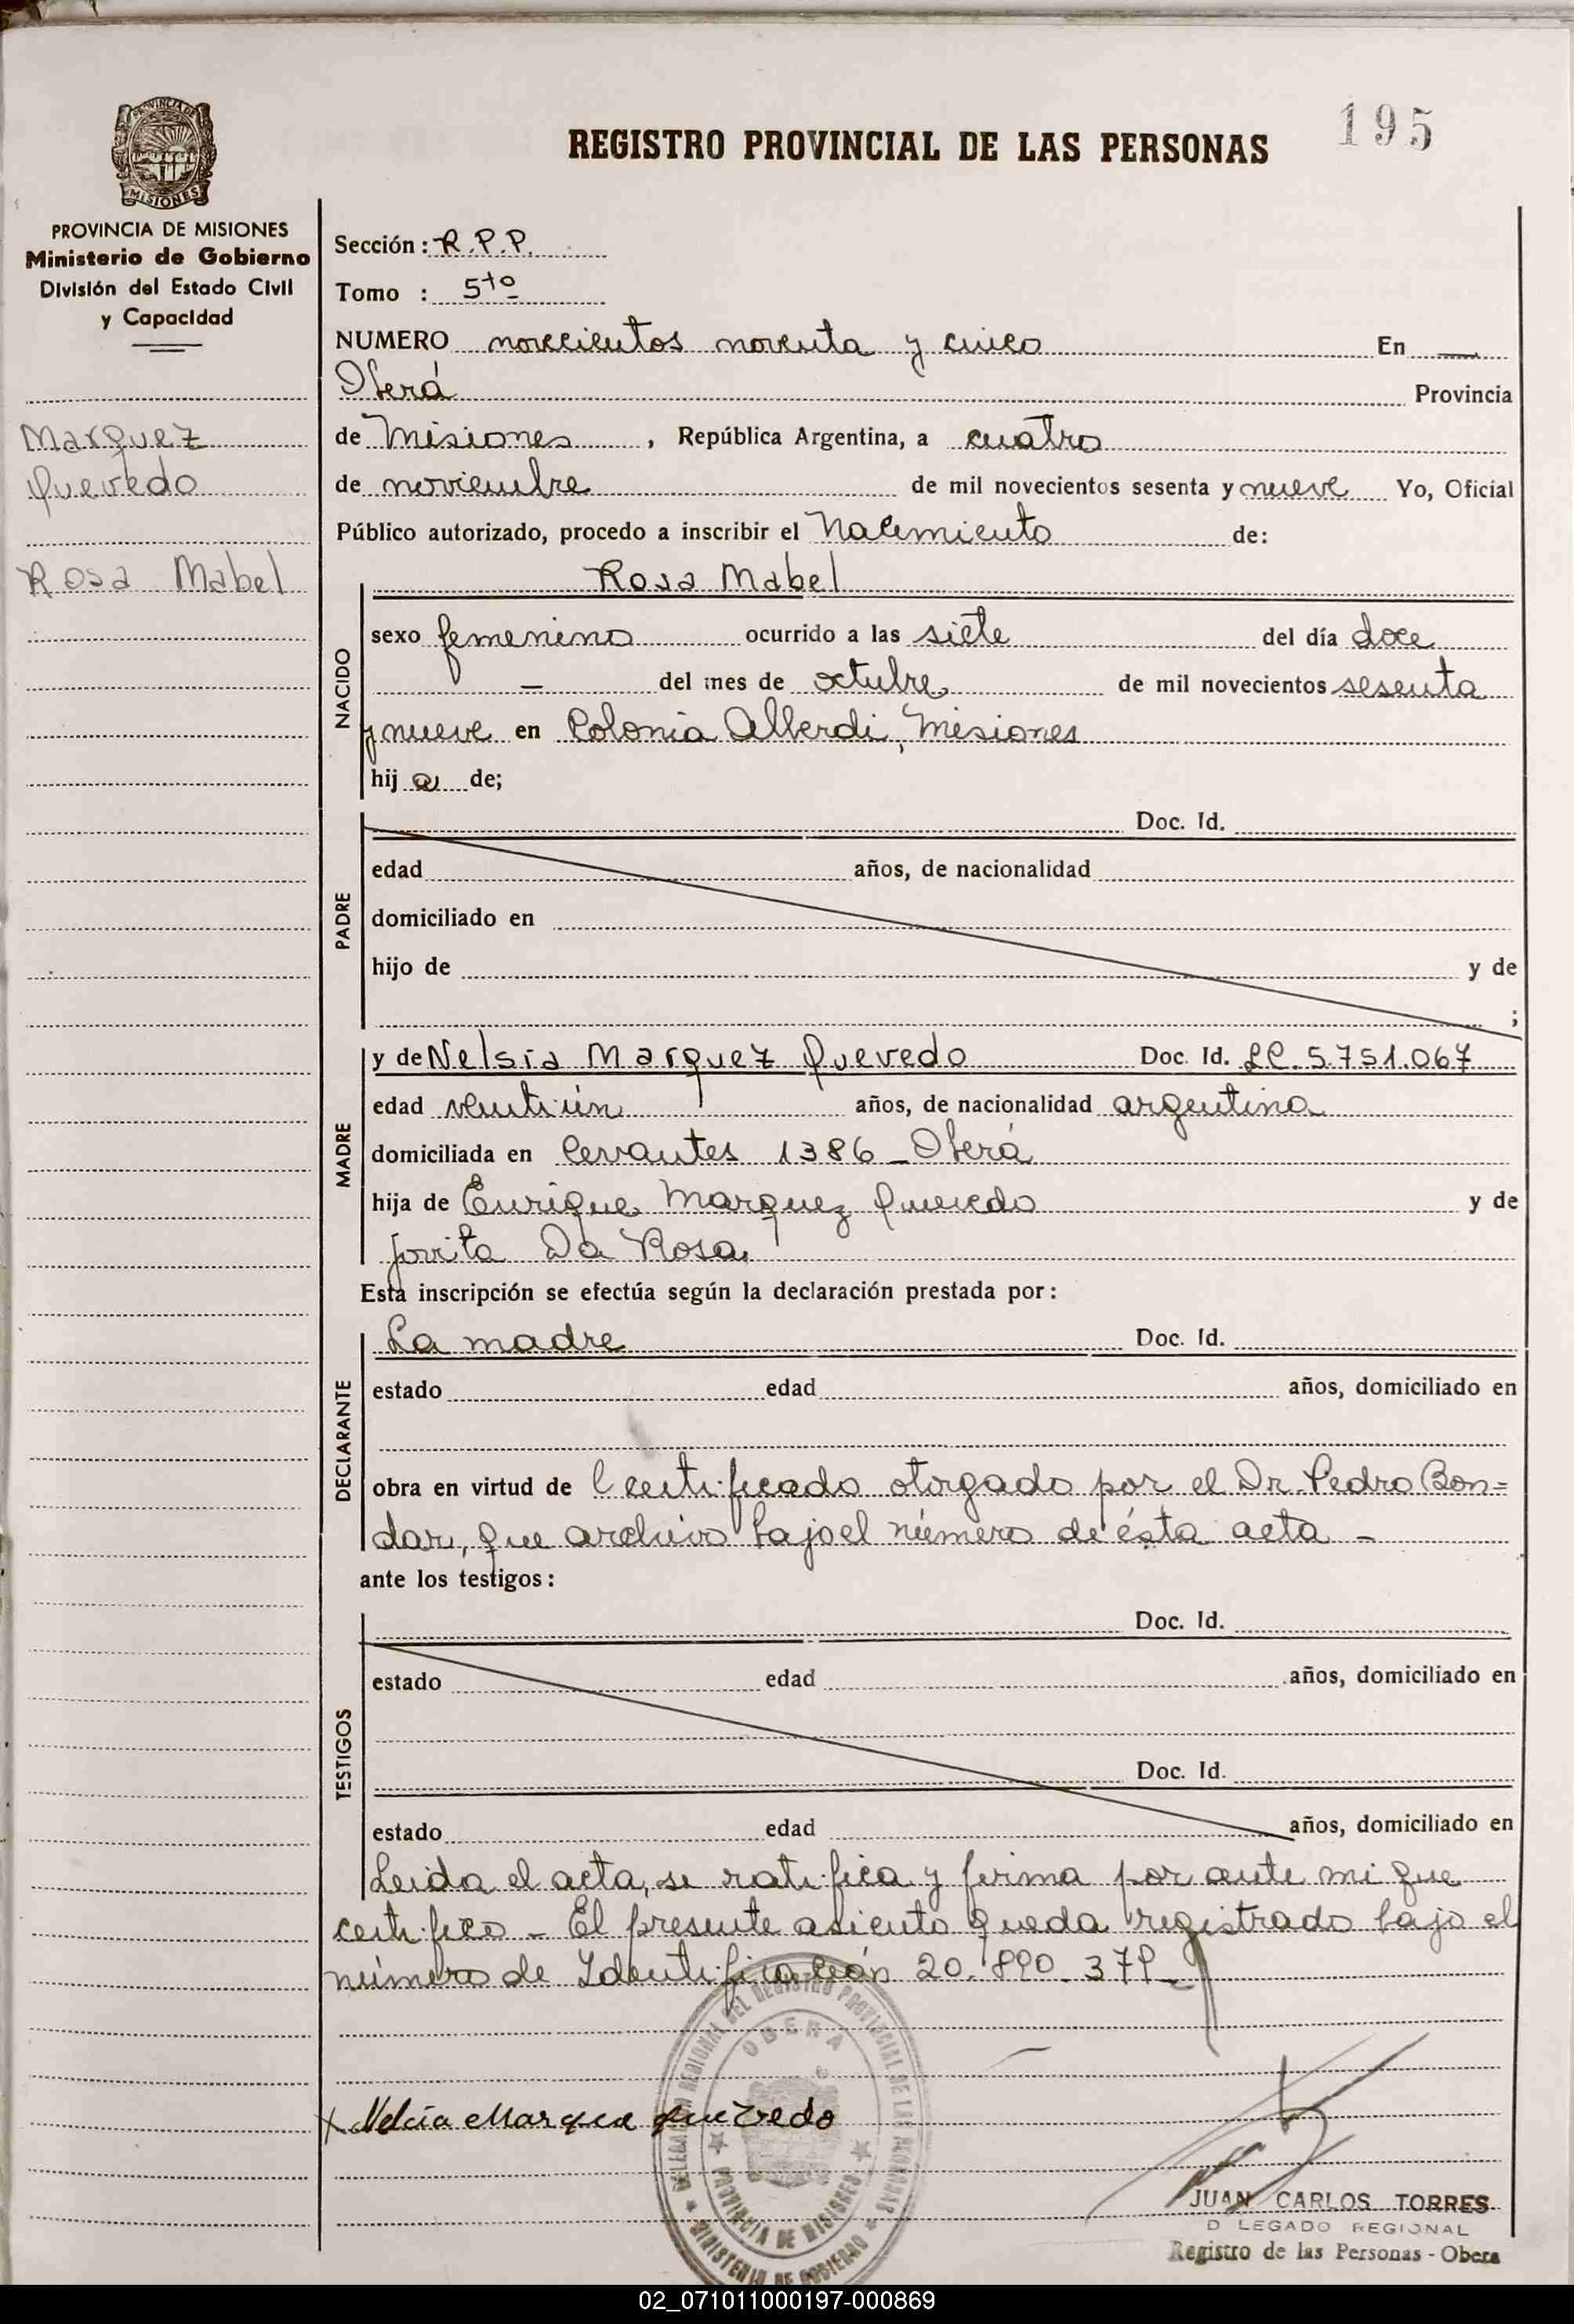 195
REGISTRO PROVINCIAL DE LAS PERSONAS
PROVINCIA DE MISIONES
PROVINCIA DE MISIONES
Ministerio de Gobierno
División del Estado Civil
y Capacidad
Marquez
Quevedo
Rosa Mabel
Sección : R.P.P.
Tomo : 5to
NUMERO novecientos noventa y cinco En —
Oberá Provincia
de Misiones , República Argentina, a cuatro
de noviembre de mil novecientos sesenta y nueve Yo, Oficial
Público autorizado, procedo a inscribir el Nacimiento de:
Rosa Mabel
NACIDO
sexo femenino ocurrido a las siete del día doce
— del mes de octubre de mil novecientos sesenta
y nueve en Colonia Alberdi, Misiones
hij a de;
PADRE
Doc. Id.
edad años, de nacionalidad
domiciliado en
hijo de y de
;
MADRE
y de Nelsia Marquez Quevedo Doc. Id. LC. 5.751.067
edad ventiún años, de nacionalidad argentina
domiciliada en Cervantes 1386 - Oberá
hija de Enrique Marquez Quevedo y de
Jovita Da Rosa
Esta inscripción se efectúa según la declaración prestada por :
DECLARANTE
La madre Doc. Id.
estado edad años, domiciliado en
obra en virtud de l certificado otorgado por el Dr. Pedro Bon=
dar, que archivo bajo el número de ésta acta -
ante los testigos :
TESTIGOS
Doc. Id.
estado edad años, domiciliado en
Doc. Id.
estado edad años, domiciliado en
Leida el acta, se ratifica y firma por ante mi que
certifico - El presente asiento queda registrado bajo el
número de Identificación 20.890.379 -
DELEGACION REGIONAL DEL REGISTRO PROVINCIAL DE LAS PERSONAS
OBERA
PROVINCIA DE MISIONES
MINISTERIO DE GOBIERNO
x Nelcia Marquez Quevedo
JUAN CARLOS TORRES
D LEGADO REGIONAL
Registro de las Personas - Obera
02_071011000197-000869